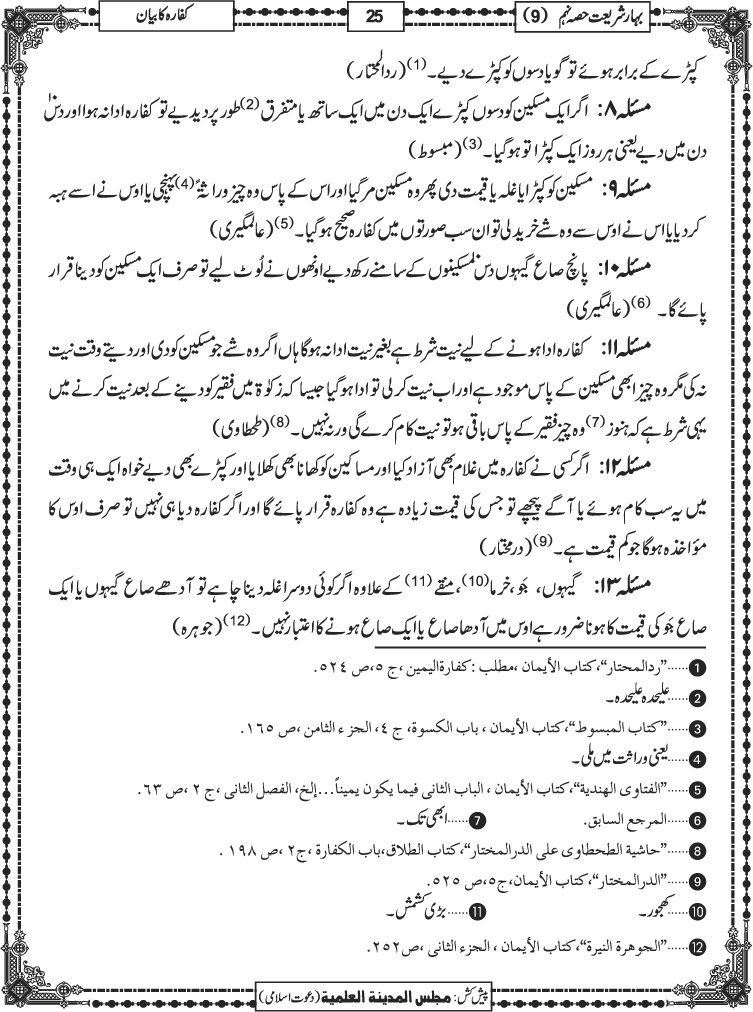 بہار شریعت حصہ نہم (9)
25
کفارہ کا بیان
کپڑے کے برابر ہوئے تو گویا دسوں کو کپڑے دیے۔(1) (ردالمحتار)
مسئلہ ۸: اگر ایک مسکین کو دسوں کپڑے ایک دن میں ایک ساتھ یا متفرق(2) طور پر دیدیے تو کفارہ ادا نہ ہوا اور دس
دن میں دیے یعنی ہر روز ایک کپڑا تو ہوگیا۔(3) (مبسوط)
مسئلہ ۹: مسکین کو کپڑا یا غلہ یا قیمت دی پھر وہ مسکین مرگیا اور اس کے پاس وہ چیز وراثۃً(4) پہنچی یا اوس نے اسے ہبہ
کردیا یا اس نے اوس سے وہ شے خرید لی تو ان سب صورتوں میں کفارہ صحیح ہوگیا۔(5) (عالمگیری)
مسئلہ ۱۰: پانچ صاع گیہوں دس مسکینوں کے سامنے رکھ دیے اونھوں نے لُوٹ لیے تو صرف ایک مسکین کو دینا قرار
پائے گا۔(6) (عالمگیری)
مسئلہ ۱۱: کفارہ ادا ہونے کے لیے نیت شرط ہے بغیر نیت ادا نہ ہوگا ہاں اگر وہ شے جو مسکین کو دی اور دیتے وقت نیت
نہ کی مگر وہ چیز ابھی مسکین کے پاس موجود ہے اور اب نیت کرلی تو ادا ہوگیا جیسا کہ زکوٰۃ میں فقیر کو دینے کے بعد نیت کرنے میں
یہی شرط ہے کہ ہنوز(7) وہ چیز فقیر کے پاس باقی ہو تو نیت کام کرے گی ورنہ نہیں۔(8) (طحطاوی)
مسئلہ ۱۲: اگر کسی نے کفارہ میں غلام بھی آزاد کیا اور مساکین کو کھانا بھی کھلایا اور کپڑے بھی دیے خواہ ایک ہی وقت
میں یہ سب کام ہوئے یا آگے پیچھے تو جس کی قیمت زیادہ ہے وہ کفارہ قرار پائے گا اور اگر کفارہ دیا ہی نہیں تو صرف اوس کا
مؤاخذہ ہوگا جو کم قیمت ہے۔(9) (درمختار)
مسئلہ ۱۳: گیہوں، جَو، خرما(10)، منقے(11) کے علاوہ اگر کوئی دوسرا غلہ دینا چاہے تو آدھے صاع گیہوں یا ایک
صاع جَو کی قیمت کا ہونا ضرور ہے اوس میں آدھا صاع یا ایک صاع ہونے کا اعتبار نہیں۔(12) (جوہرہ)
1 ......”ردالمحتار“، کتاب الأیمان، مطلب: کفارة الیمین، ج ٥، ص ٥٢٤.
2 ......علیحدہ علیحدہ۔
3 ......”کتاب المبسوط“، کتاب الأیمان، باب الکسوة، ج ٤، الجزء الثامن، ص ١٦٥.
4 ......یعنی وراثت میں ملی۔
5 ......”الفتاوی الهندیة“، کتاب الأیمان، الباب الثانی فیما یکون یمیناً...إلخ، الفصل الثانی، ج ٢، ص ٦٣.
6 ......المرجع السابق. 7 ......ابھی تک۔
8 ......”حاشیة الطحطاوی علی الدرالمختار“، کتاب الطلاق، باب الکفارة، ج٢، ص ١٩٨.
9 ......”الدرالمختار“، کتاب الأیمان، ج٥، ص ٥٢٥.
10 ......کھجور۔ 11 ......بڑی کشمش۔
12 ......”الجوهرة النیرة“، کتاب الأیمان، الجزء الثانی، ص٢٥٢.
پیش کش: مجلس المدینة العلمیة (دعوت اسلامی)